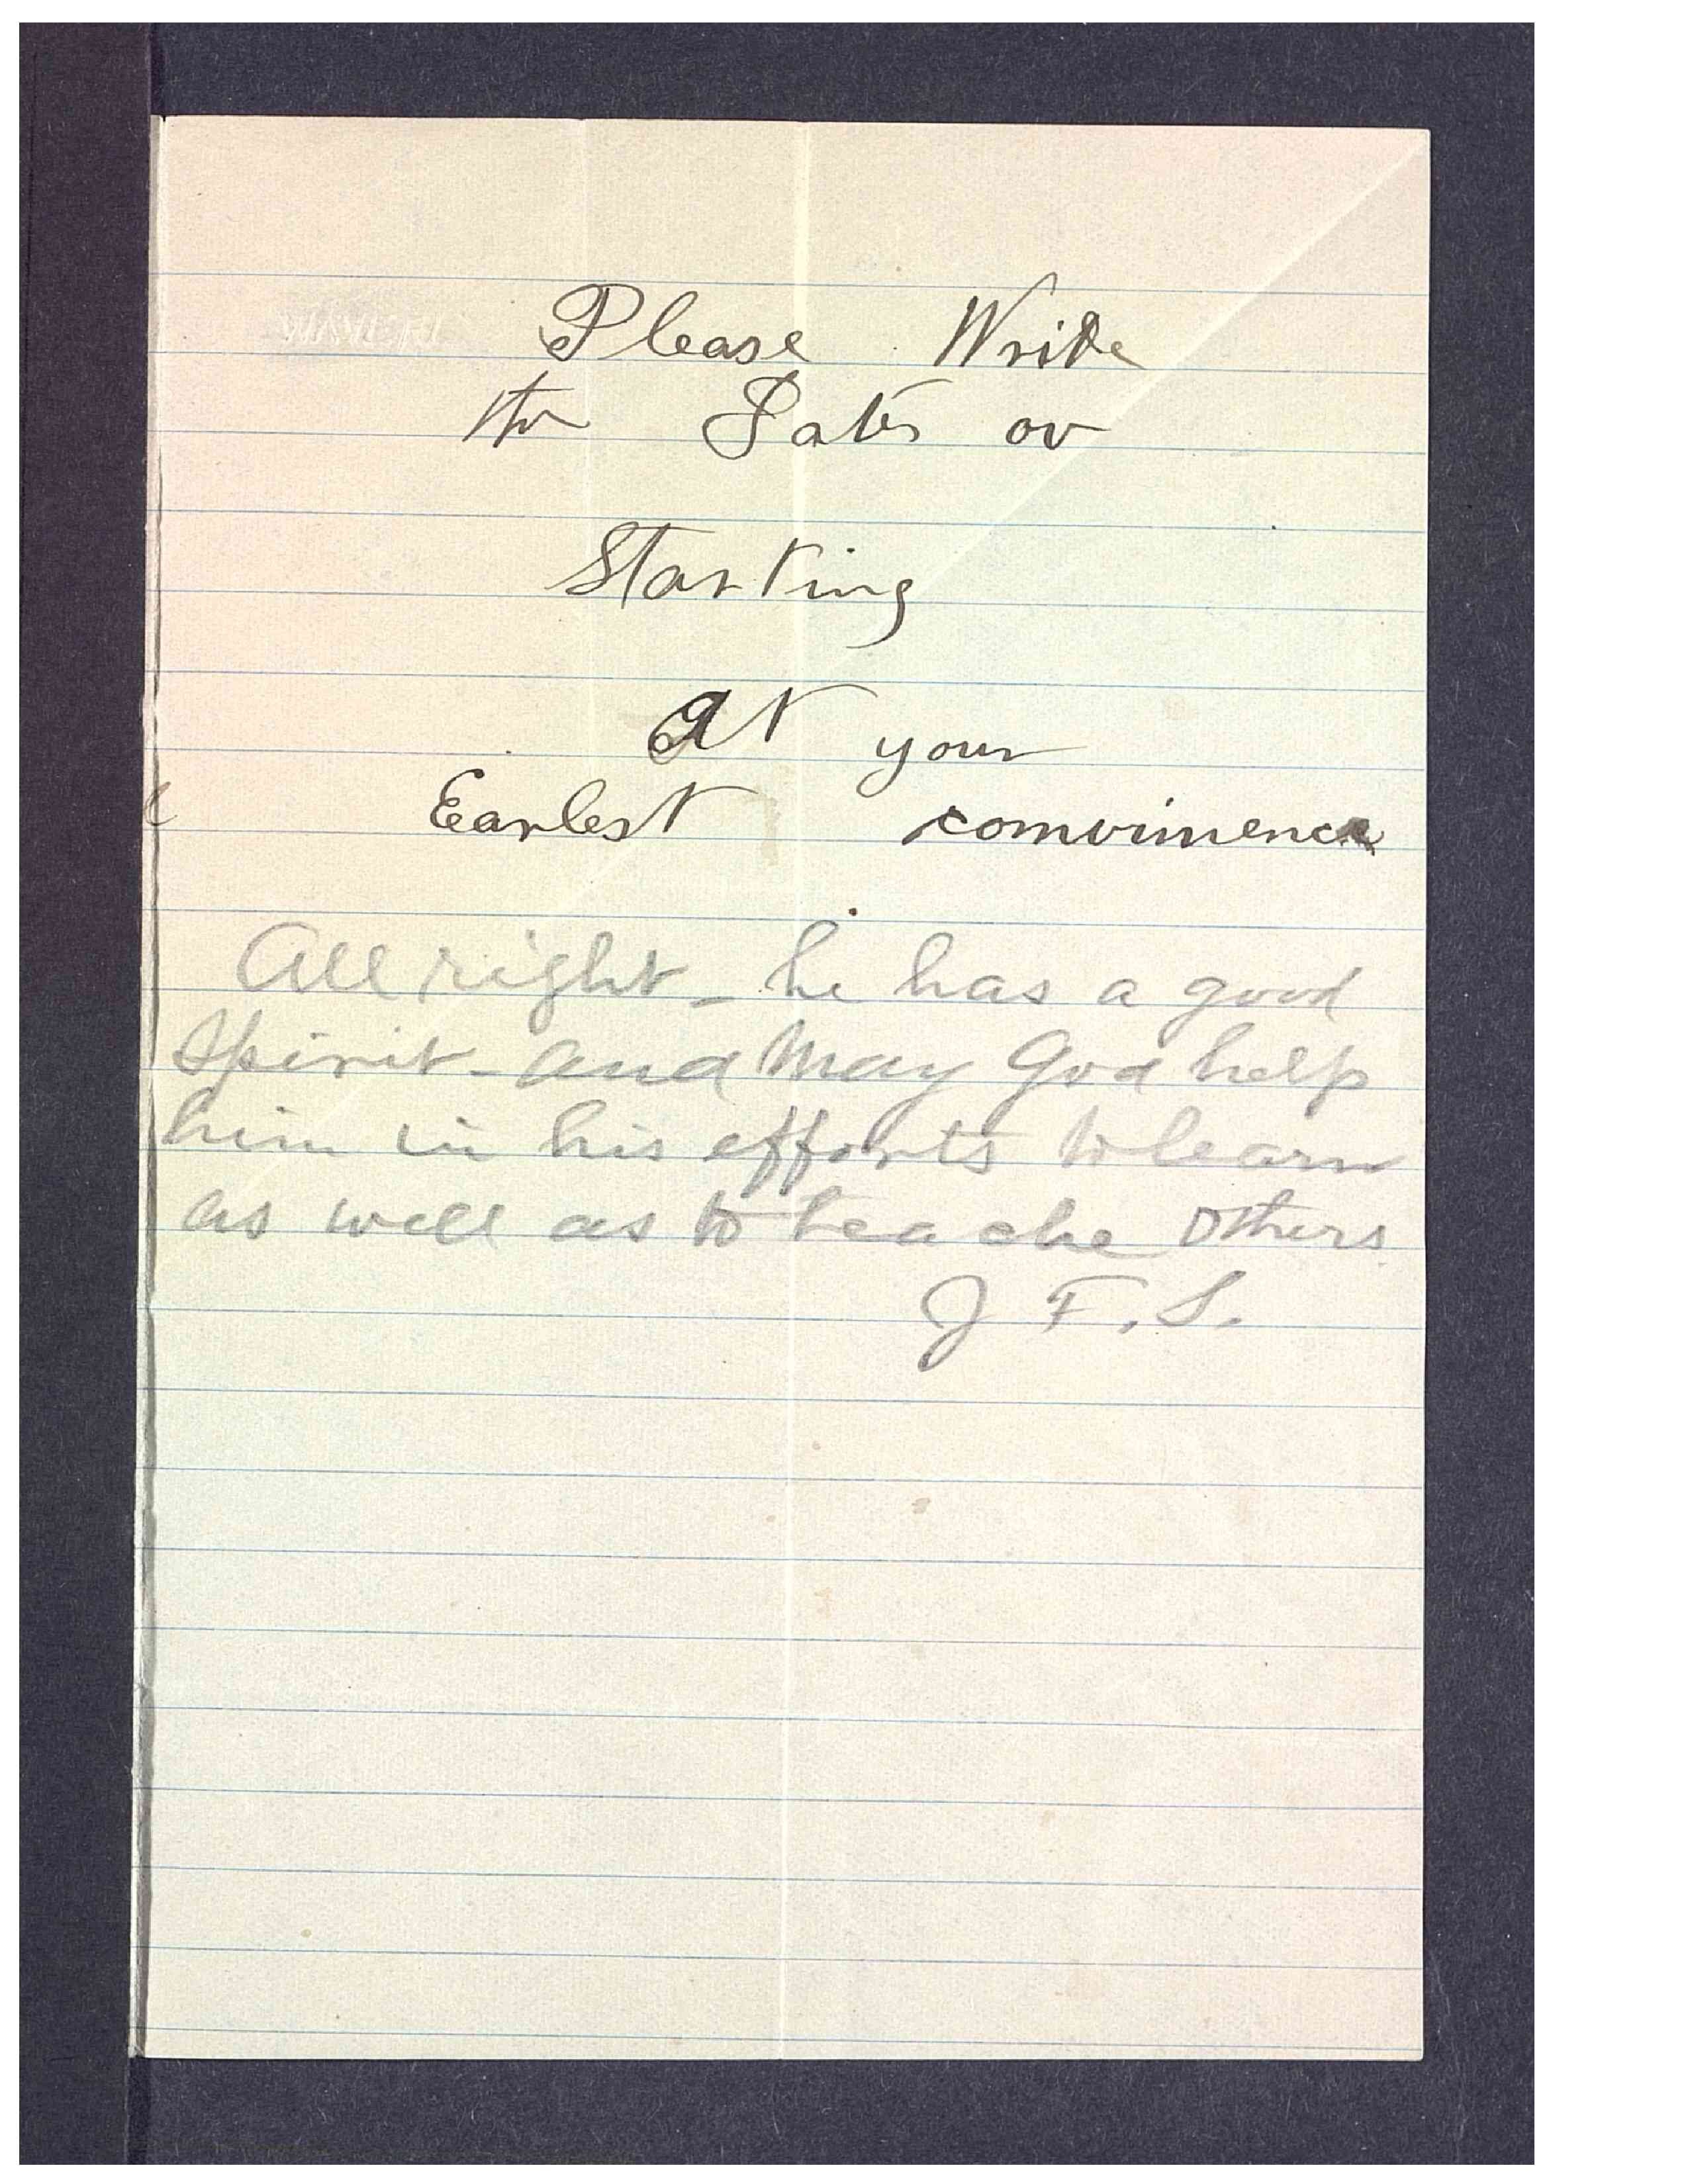 Please Write
the Dates ov
Starting
At your
Earlest comvinence
All right - he has a good
spirit - and may God help
him in his efforts to learn
as well as to teache others
J F. S.